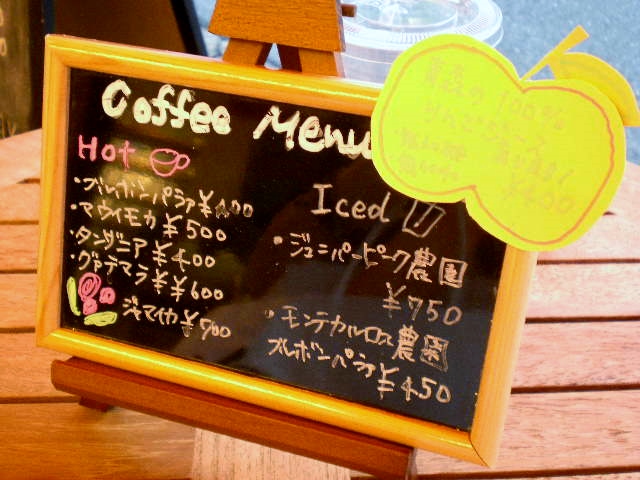 Coffee Menu
Hot
・ブルボンパラァ ¥400
・マウイモカ ¥500
・タンザニア ¥400
・グァテマラ ¥¥600
ジャマイカ ¥700
Iced
・ジュニパーピーク農園
¥750
・モンテカルロス農園
ブルボンパラァ ¥450
青森の 100%
りんごジュース
¥450